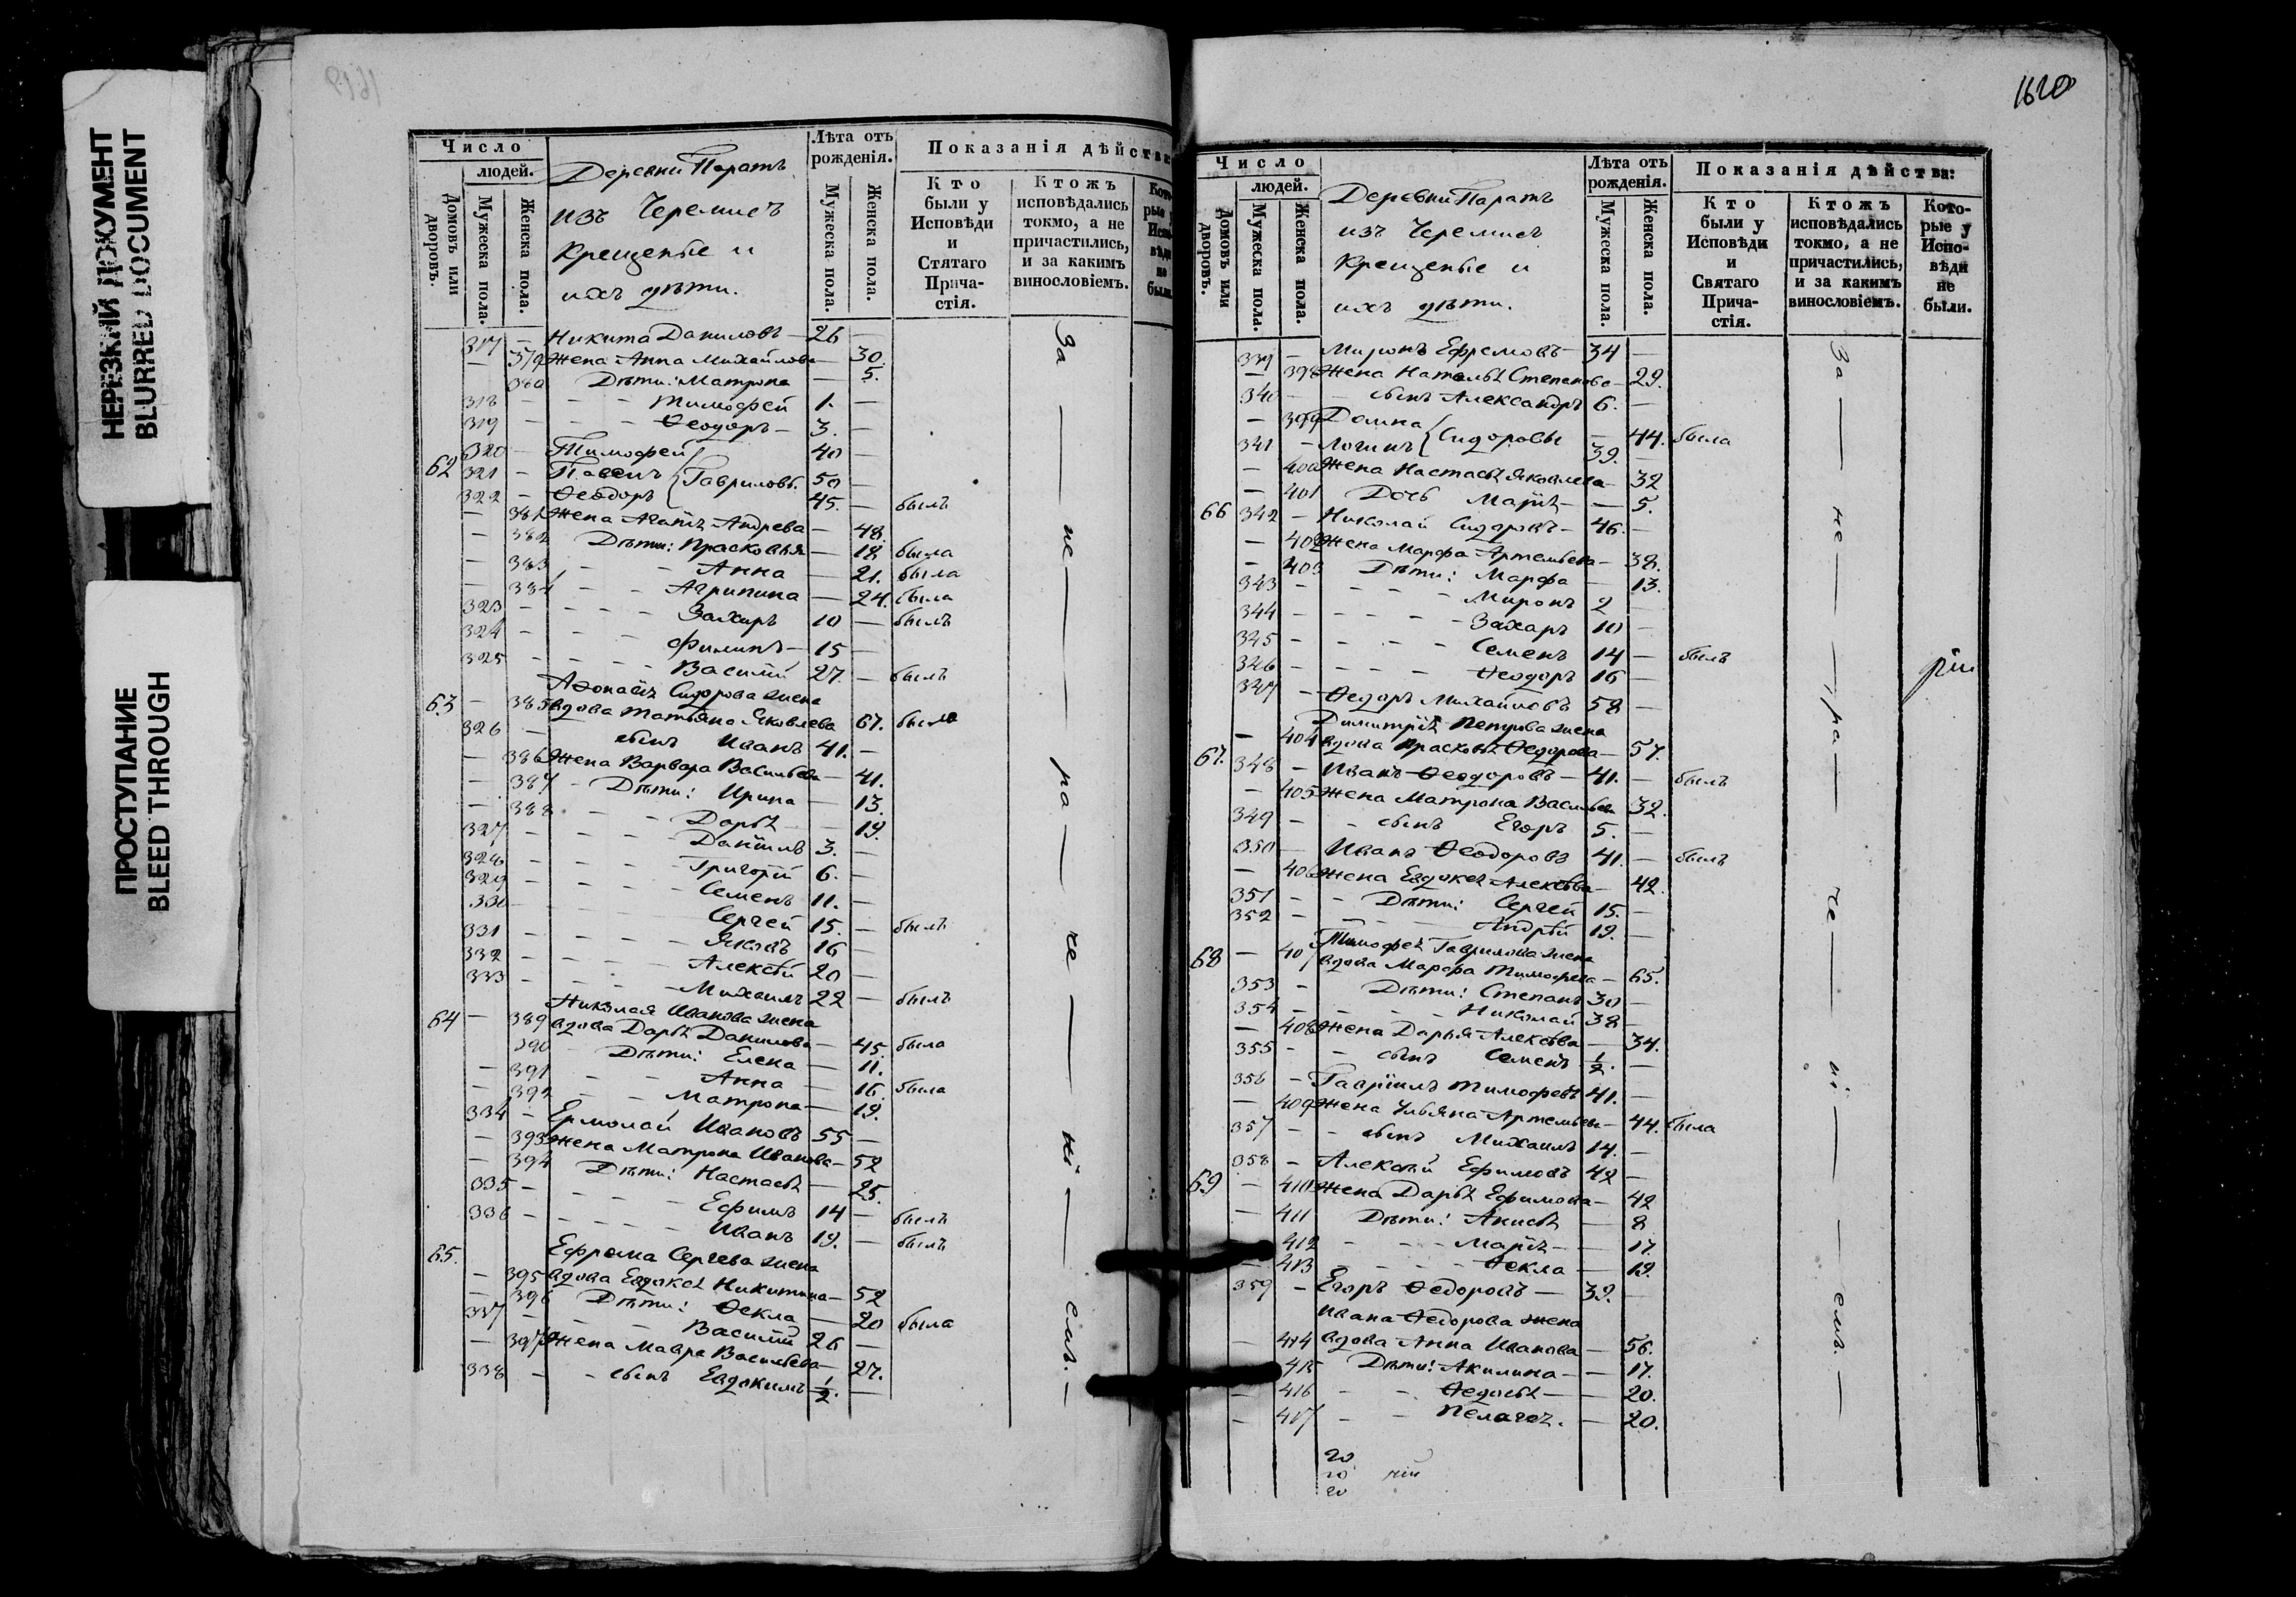 НЕРЕЗКИЙ ДОКУМЕНТ
BLURRED DOCUMENT
ПРОСТУПАНИЕ
BLEED THROUGH
1619
Число
людей.
Домовъ или дворовъ.
Мужеска пола.
Женска пола.
Деревни Паратъ
изъ Черемисъ
Крещеные и
ихъ дѣти.
Лѣта отъ рожденія.
Мужеска пола.
Женска пола.
Показанія дѣйства
Кто были у Исповѣди и Стятаго Прича-стія.
Ктожъ исповѣдались токмо, а не причастились, и за какимъ винословіемъ.
317 — Никита Даниловъ — 26 —
— 379 Жена Анна Михайлова — 30.
380 Дѣти: Матрона — 5.
318 — — — Тимофей 1. —
319 — — — Ѳеодоръ — 3. —
320 — Тимофей 40 —
62 321 — Павелъ Гавриловы. 50 —
322 — Ѳеодоръ 45. — былъ
— 381 Жена Агаѳія Андрева — 48.
— 382 Дѣти: Прасковья — 18 была
— 383 — — Анна — 21. была
— 384 — — Агрипина — 24. была
323 — — — Захаръ 10 — былъ
324 — — — Филипъ — 15 —
325 — — — Василій 27. — былъ
Аѳонасія Сидорова жена
63 — 385 вдова Татьяна Яковлева 67. была
326 — сынъ Иванъ 41. —
— 386 Жена Варвара Васильева — 41.
— 387 — Дѣти: Ирина — 13.
— 388 — — Дарья — 19.
327 — — — Даніилъ 3. —
328 — — — Григорій 6. —
329 — — — Семенъ 11. —
330 — — — Сергей 15. — былъ
331 — — — Яковъ 16 —
332 — — — Алексѣй 20 —
333 — — — Михаилъ 22 — былъ
Николая Иванова жена
64 — 389 вдова Дарья Данилова — 45. была
390 Дѣти: Елена — 11.
— 391 — — Анна — 16. была
— 392 — — Матрона — 19.
334 — Ермолай Ивановъ 55 —
— 393 Жена Матрона Иванова — 52
— 394 Дѣти: Настасья — 25.
335 — — — Ефимъ 14 — былъ
336 — — — Иванъ 19. — былъ
65. Ефрема Сергева жена
— 395 вдова Евдокея Никитина — 52
— 396 Дѣти: Ѳекла — 20 была
337 — — — Василій 26 —
— 397 Жена Мавра Васильева — 27.
338 — — сынъ Евдокимъ 1/2. —
За — не — ра — че — ні — емъ. —
1620
Число
людей.
Домовъ или дворовъ.
Мужеска пола.
Женска пола.
Деревни Паратъ
изъ Черемисъ
Крещеные и
ихъ дѣти.
Лѣта отъ рожденія.
Мужеска пола.
Женска пола.
Показанія дѣйства:
Кто были у Исповѣди и Святаго Прича-стія.
Ктожъ исповѣдались токмо, а не причастились, и за какимъ винословіемъ.
Кото-рые у Испо-вѣди не были.
339 — Миронъ Ефремовъ — 34 —
— 398 Жена Наталья Степанова — 29.
340 — — сынъ Александръ 6. —
— 399 Домна Сидоровы — 44. была
341 — Логинъ 39. —
— 400 Жена Настасья Яковлева — 32
— 401 Дочь Марія — — 5.
66 342 — Николай Сидоровъ — 46. —
— 402 Жена Марфа Артемьева — 38.
— 403 Дѣти: Марфа — 13.
343 — — — Миронъ 2 —
344 — — — Захаръ 10 —
345 — — — Семенъ 14 — былъ
346 — — — Ѳеодоръ 16 —
347 — Ѳедоръ Михайловъ 58 —
Димитрія Петрова жена
— 404 вдова Прасковья Ѳедорова — 57.
67. 348 — Иванъ Ѳеодоровъ — 41. — былъ
— 405 Жена Матрона Васильева 32.
349 — — сынъ Егоръ 5. —
350 — Иванъ Ѳеодоровъ 41. — былъ
— 406 Жена Евдокея Алексѣева — 42.
351 — — Дѣти: Сергей 15. —
352 — — — Андрей 19. —
Тимофея Гаврилова жена
68 — 407 вдова Марфа Тимофева — 65.
353 — Дѣти: Степанъ 30 —
354 — — — Николай 38 —
— 408 Жена Дарья Алексѣева — 34.
355 — — сынъ Семенъ 1/2. —
356 — Гавріилъ Тимофевъ 41. —
— 409 Жена Ульяна Артемьева — 44. была
357 — — сынъ Михаилъ 14. —
358 — Алексѣй Ефимовъ 42 —
69 — 410 Жена Дарья Ефимова — 42
— 411 Дѣти: Анисья — 8
412 — — Марія — — 17.
413 — — Ѳекла — 19.
359 — Егоръ Ѳедоровъ — 39. —
Ивана Ѳедорова жена
— 414 вдова Анна Иванова — 56.
415 Дѣти: Акилина — — 17.
— 416 — — Ѳедосья — — 20.
— 417 — — Пелагея. — 20.
За — не — ра — че — ні — емъ. —